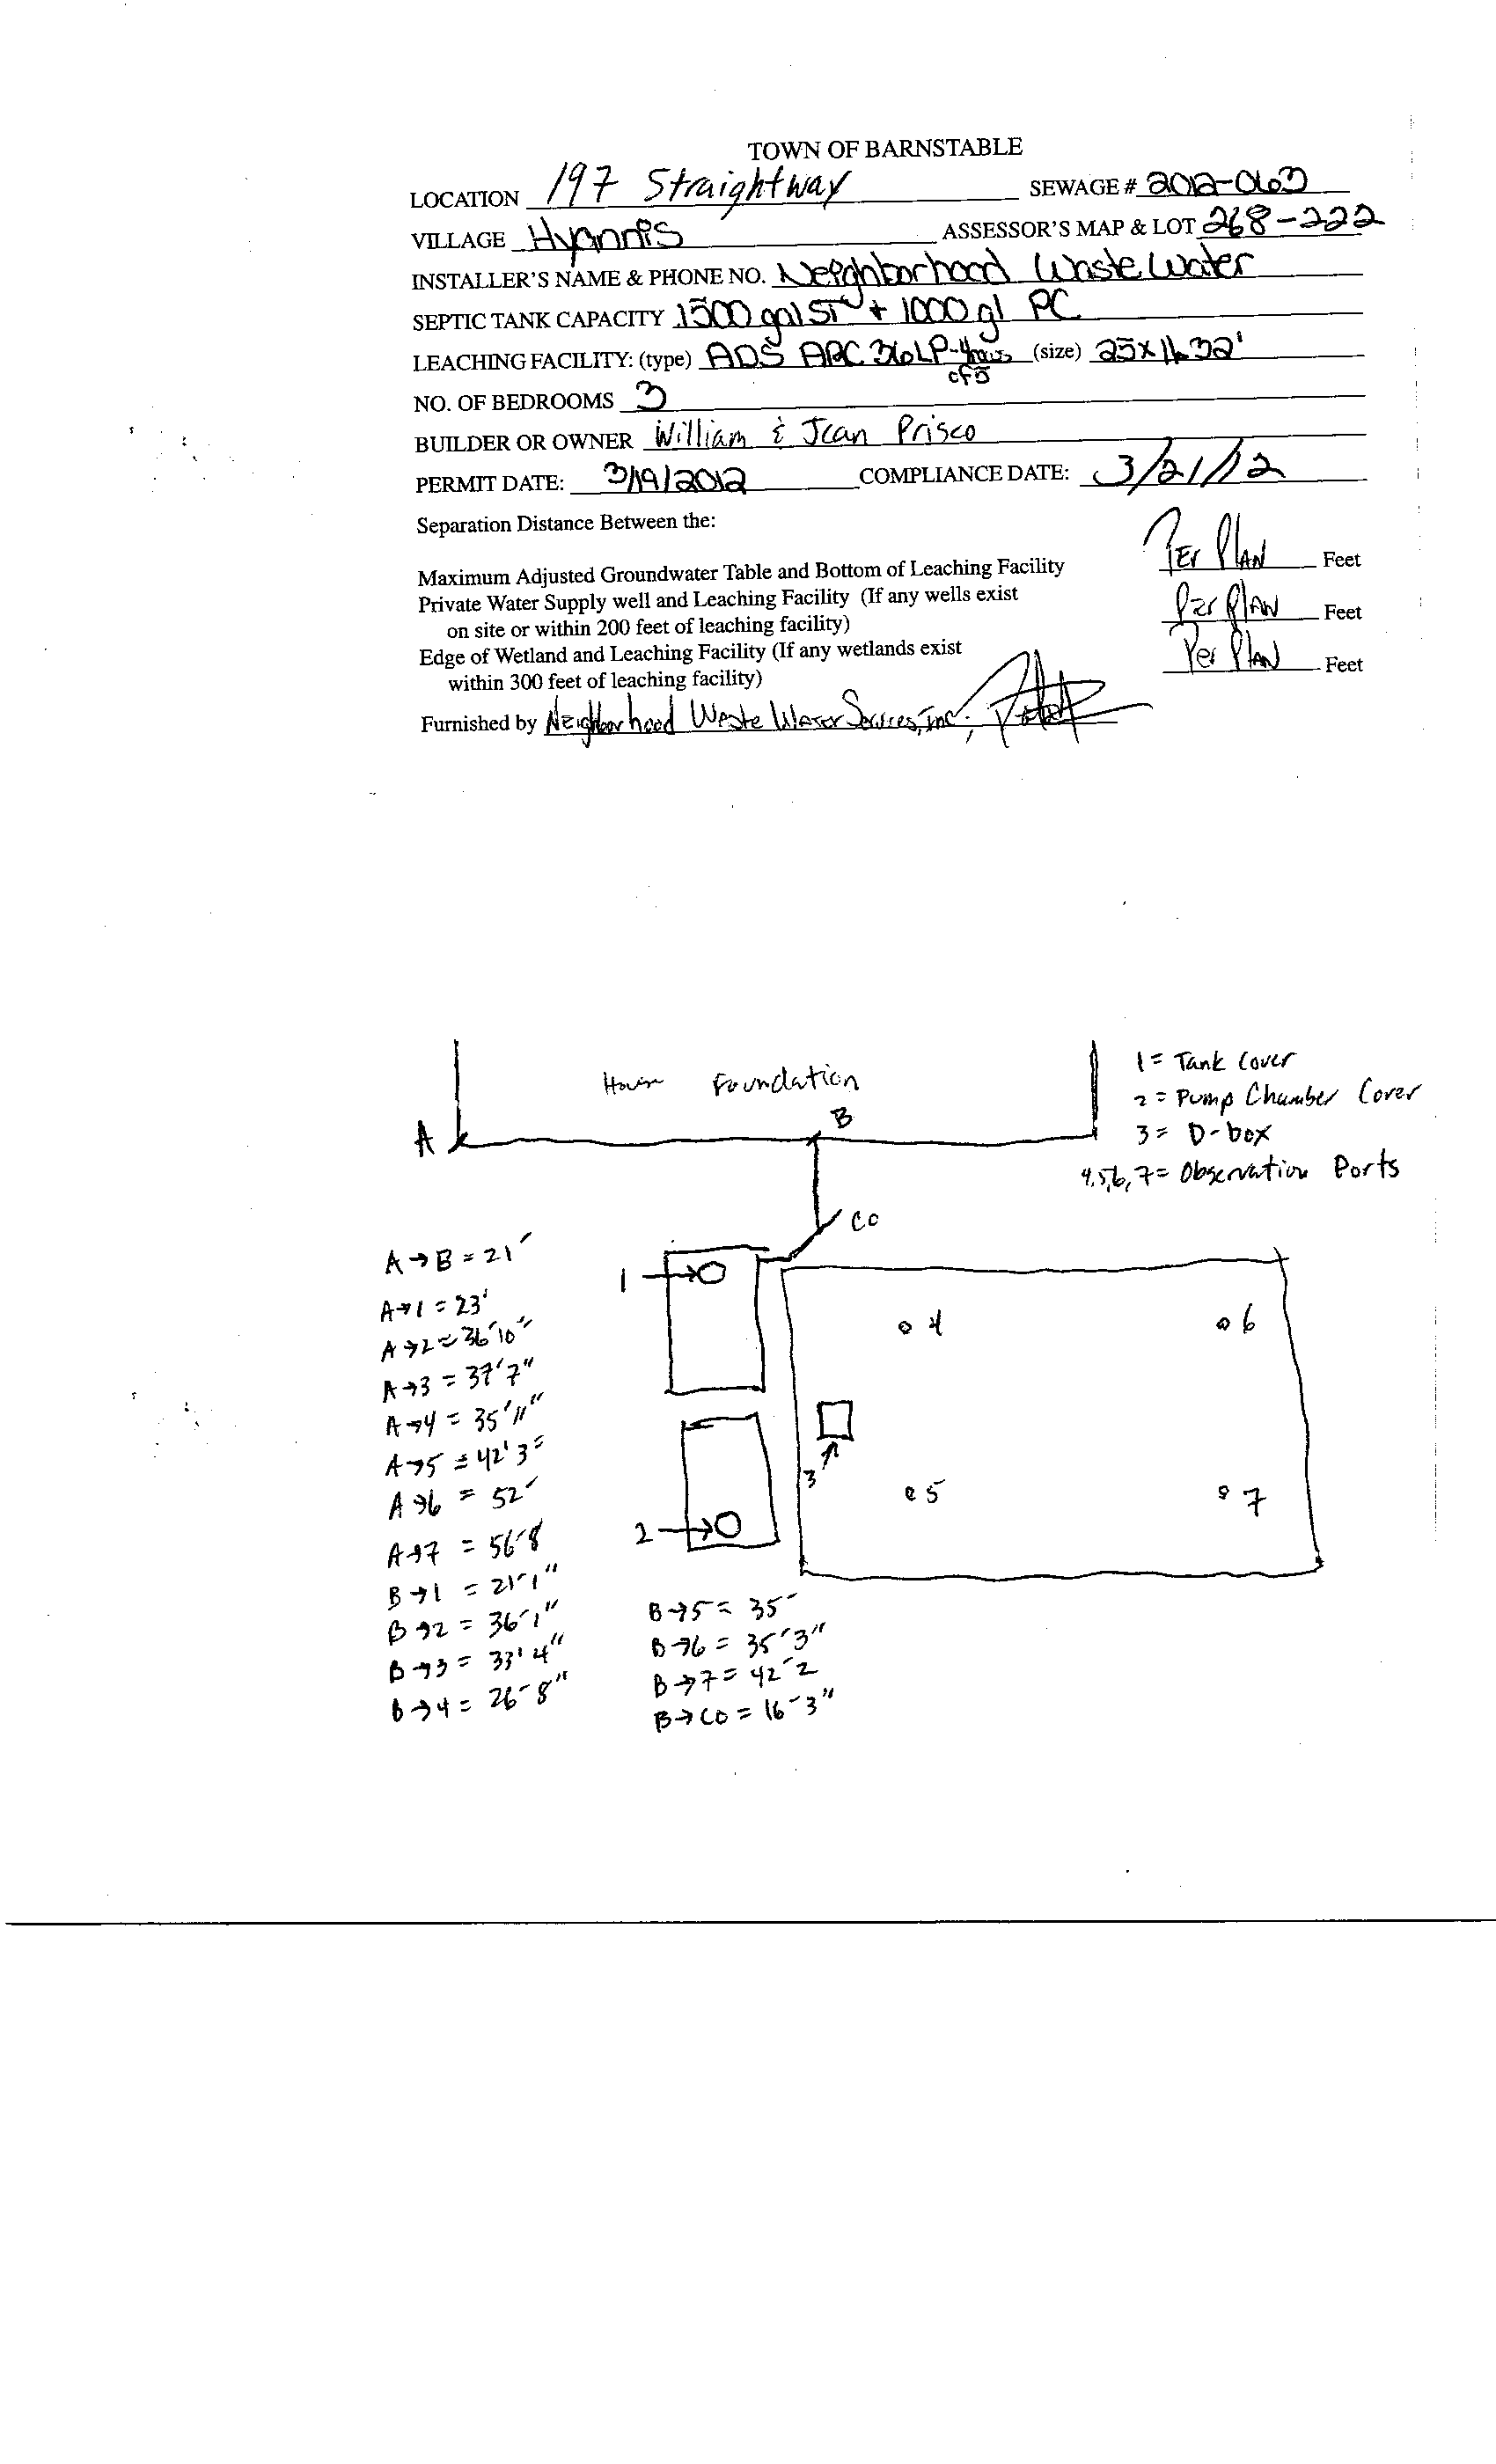 TOWN OF BARNSTABLE
LOCATION 197 Straightway SEWAGE # 2012-063
VILLAGE Hyannis ASSESSOR'S MAP & LOT 268-222
INSTALLER'S NAME & PHONE NO. Neighborhood Waste Water
SEPTIC TANK CAPACITY 1500 gal ST + 1000 gl PC
LEACHING FACILITY: (type) ADS ARC 36LP-4rows (size) 25x16.32'
of 5
NO. OF BEDROOMS 3
BUILDER OR OWNER William & Jean Prisco
PERMIT DATE: 3/19/2012 COMPLIANCE DATE: 3/21/12
Separation Distance Between the:
Maximum Adjusted Groundwater Table and Bottom of Leaching Facility Per Plan Feet
Private Water Supply well and Leaching Facility (If any wells exist
on site or within 200 feet of leaching facility) Per Plan Feet
Edge of Wetland and Leaching Facility (If any wetlands exist
within 300 feet of leaching facility) Per Plan Feet
Furnished by Neighborhood Waste Water Services, Inc.
House Foundation
1 = Tank Cover
2 = Pump Chamber Cover
3 = D-box
4,5,6,7 = Observation Ports
A
B
CO
1
2
3
4
5
6
7
A→B = 21'
A→1 = 23'
A→2 = 36'10"
A→3 = 37'7"
A→4 = 35'11"
A→5 = 42'3"
A→6 = 52'
A→7 = 56'8
B→1 = 21'1"
B→2 = 36'1"
B→3 = 33'4"
B→4 = 26'8"
B→5 = 35'
B→6 = 35'3"
B→7 = 42'2
B→CO = 16'3"